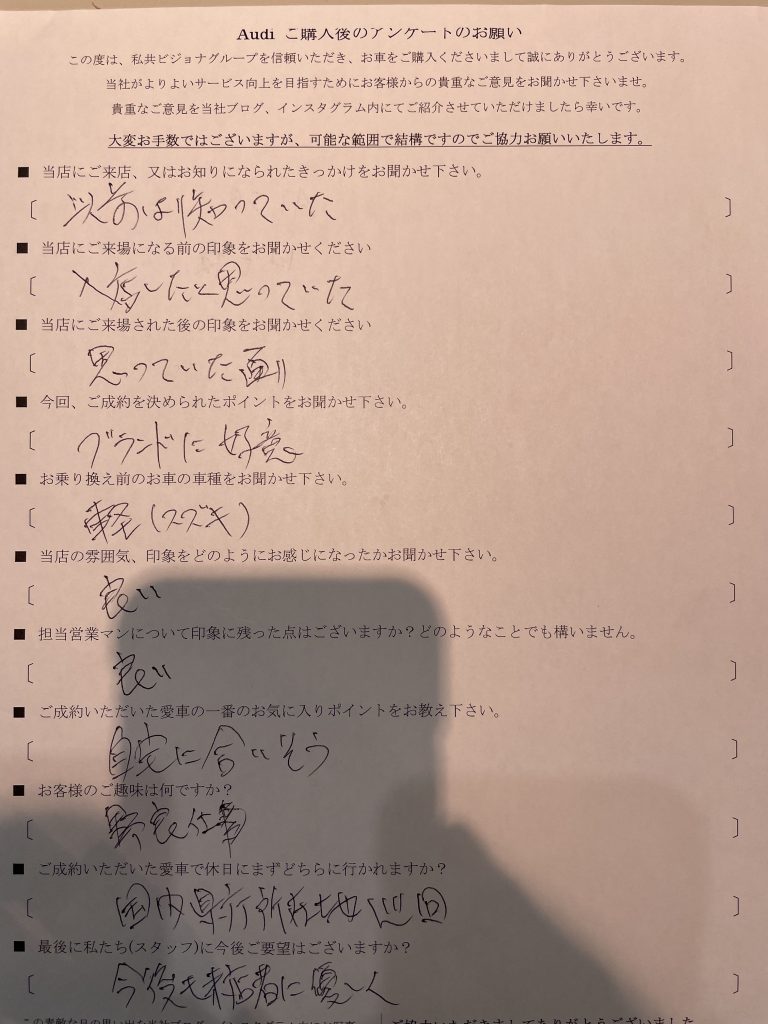 Audi ご購入後のアンケートのお願い
この度は、私共ビジョナグループを信頼いただき、お車をご購入くださいまして誠にありがとうございます。
当社がよりよいサービス向上を目指すためにお客様からの貴重なご意見をお聞かせ下さいませ。
貴重なご意見を当社ブログ、インスタグラム内にてご紹介させていただけましたら幸いです。
大変お手数ではございますが、可能な範囲で結構ですのでご協力お願いいたします。
■ 当店にご来店、又はお知りになられたきっかけをお聞かせ下さい。
〔 以前は知っていた 〕
■ 当店にご来場になる前の印象をお聞かせください
〔 したと思っていた 〕
■ 当店にご来場された後の印象をお聞かせください
〔 思っていた 〕
■ 今回、ご成約を決められたポイントをお聞かせ下さい。
〔 ブランドに好意 〕
■ お乗り換え前のお車の車種をお聞かせ下さい。
〔 軽(スズキ) 〕
■ 当店の雰囲気、印象をどのようにお感じになったかお聞かせ下さい。
〔 良い 〕
■ 担当営業マンについて印象に残った点はございますか？どのようなことでも構いません。
〔 良い 〕
■ ご成約いただいた愛車の一番のお気に入りポイントをお教え下さい。
〔 自宅に合いそう 〕
■ お客様のご趣味は何ですか？
〔 野良仕事 〕
■ ご成約いただいた愛車で休日にまずどちらに行かれますか？
〔 国内県庁所在地巡回 〕
■ 最後に私たち(スタッフ)に今後ご要望はございますか？
〔 今後も来店者に優しく 〕